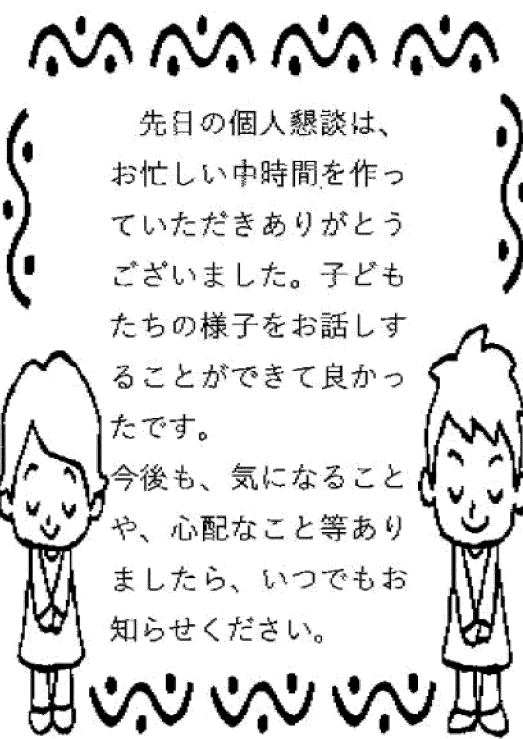 先日の個人懇談は、
お忙しい中時間を作っ
ていただきありがとう
ございました。子ども
たちの様子をお話しす
ることができて良かっ
たです。
今後も、気になること
や、心配なこと等あり
ましたら、いつでもお
知らせください。